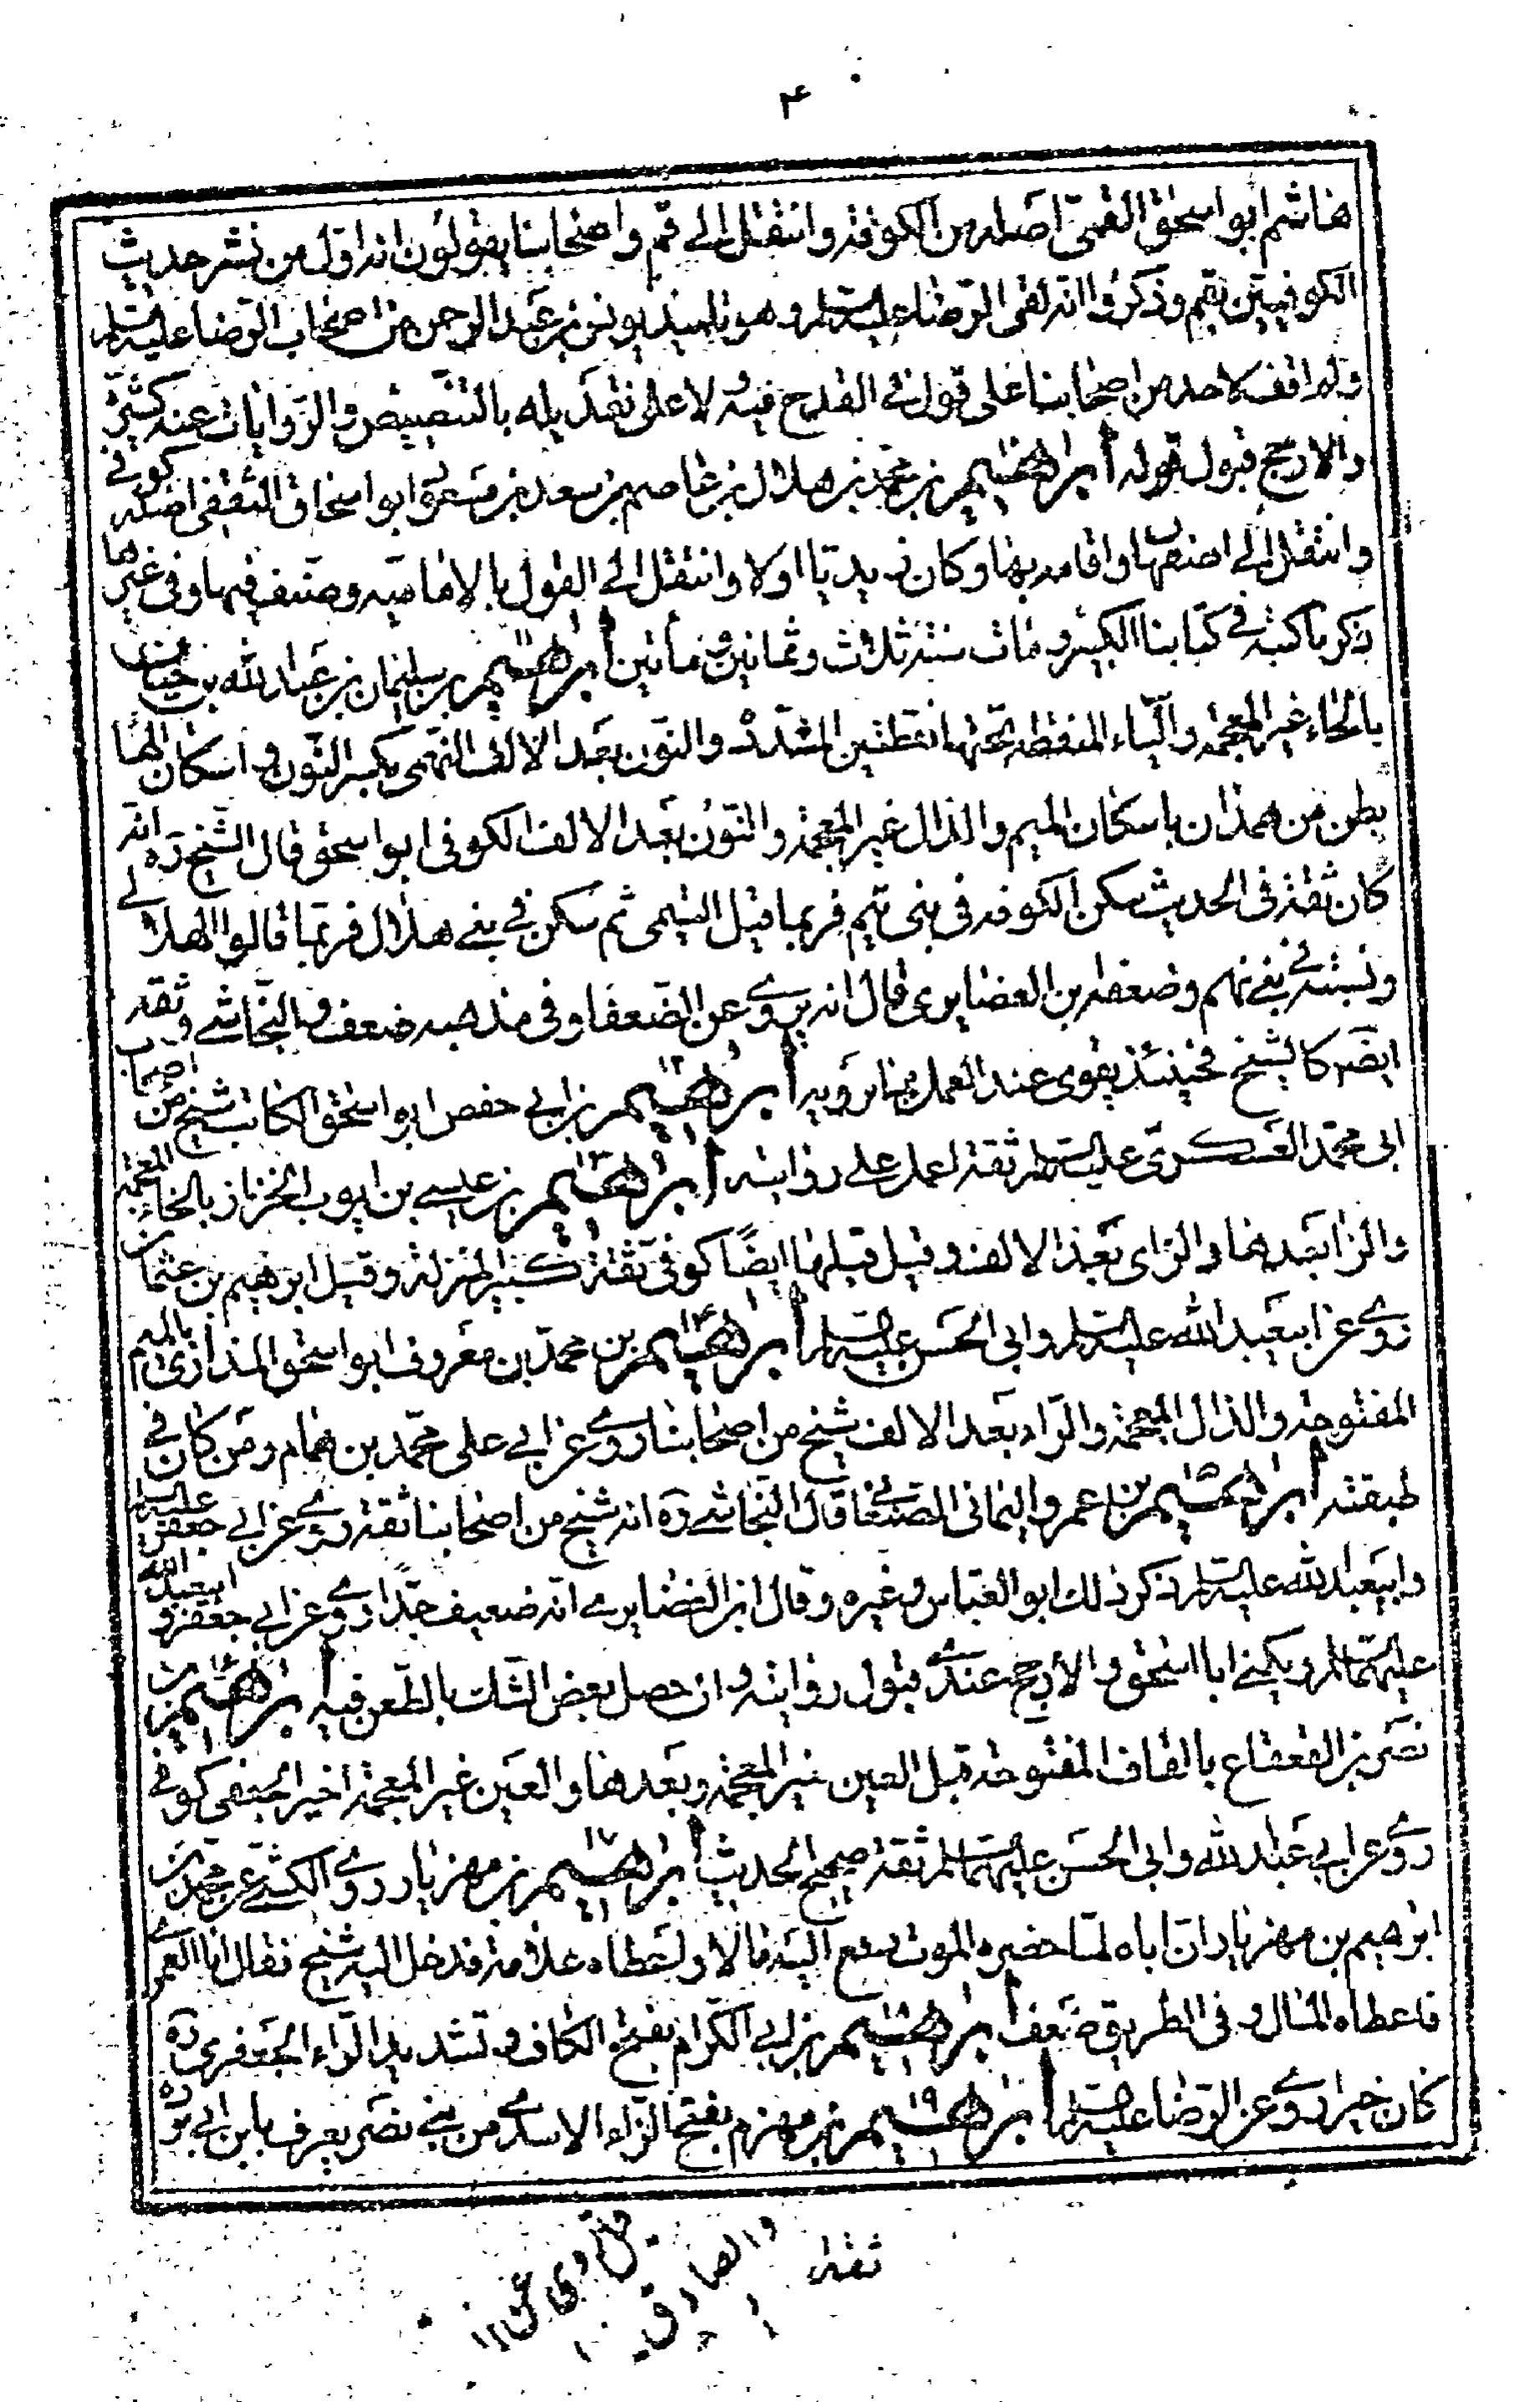 ۴
هاشم ابو اسحق القمی اصله من الکوفة وانتقل الی قم واصحابنا یقولون انه اوّل من نشر حدیث
الکوفیین بقم وذکروا انه لقی الرّضا علیه السلم وهو تلمیذ یونس بن عبد الرحمن من اصحاب الرّضا علیه السلم
ولم اقف لاحد من اصحابنا علی قول فی القدح فیه ولا علی تعدیله بالتنصیص والرّوایات عنه کثیرة
والارجح قبول قوله ابرهیم بن محمد بن هلال بن عاصم بن سعد بن مسعود ابو اسحاق الثقفی اصله کوفی
وانتقل الی اصفهان واقام بها وکان زیدیّا اولا وانتقل الی القول بالامامیه وصنف فیها وفی غیرها
ذکرنا کتبه فی کتابنا الکبیر ومات سنة ثلاث وثمانین ومأتین ابرهیم ۱۱ بن سلیمان بن عبد الله بن حیان
بالحاء غیر المعجمة والیاء المنقطة تحتها نقطتین المشدّدة والنون بعد الالف النهمی بکسر النون واسکان الها
بطن من همدان باسکان المیم والدال غیر المعجمة والنون بعد الالف الکوفی ابو اسحق قال الشیخ ره انه
کان ثقة فی الحدیث سکن الکوفة فی بنی تیم فربما قیل التیمی ثم سکن فی بنی هلال فربّما قالوا الهلالی
ونسبته فی نهم وضعفه ابن الغضایری فقال انه یروی عن الضعفا وفی مذهبه ضعف والنجاشی وثقه
ایضا کالشیخ فحینئذ یقوی عند العمل بما یرویه ابرهیم ۱۲ بن ابی حفص ابو اسحق الکاتب شیخ من اصحاب
ابی محمّد العسکری علیه السلم ثقة اعمل علی روایته ابرهیم ۱۳ بن عیسی بن ایوب الخزاز بالخاء المعجمة
والزا بعدها والزای بعد الالف وقیل قبلها ایضًا کوفی ثقة کبیر المنزلة وقیل ابرهیم بن عثمان
روی عن ابی عبد الله علیه السلم وابی الحسن علیه السلم ابرهیم ۱۴ بن محمّد بن معروف ابو اسحق المذاری بالمیم
المفتوحة والذال المعجمة والراء بعد الالف شیخ من اصحابنا روی عن ابی علی محمّد بن همام ومن کان فی
طبقته ابرهیم ۱۵ بن عمرو الیمانی الصنعانی قال النجاشی ره انه شیخ من اصحابنا ثقة روی عن ابی جعفر علیه السلم
وابی عبد الله علیه السلم ذکر ذلک ابو العباس وغیره وقال ابن الغضایری انه ضعیف جدّا روی عن ابی جعفر وابی عبد الله
علیهما السلم ویکنی ابا اسحق والارجح عندی قبول روایته وان حصل بعض الشک بالطعن فیه ابرهیم ۱۶ بن
نصر بن القعقاع بالقاف المفتوحة قبل العین غیر المعجمة وبعدها والعین غیر المعجمة اخیرا الجعفی کوفی
روی عن ابی عبد الله وابی الحسن علیهما السلم ثقة صحیح الحدیث ابرهیم ۱۷ بن مهزیار روی الکشی عن محمد بن
ابرهیم بن مهزیار ان اباه لمّا حضره الموت دفع الیه مالا واعطاه علامة فدخل الیه شیخ فقال انا العمری
فاعطاه المال وفی الطریق ضعف ابرهیم ۱۸ بن ابی الکرام بفتح الکاف وتشدید الراء الجعفری ره
کان خیرا روی عن الرّضا علیه السلم ابرهیم ۱۹ بن مهزم بفتح الزاء الاسدی من بنی نصر یعرف بابن ابی بردة
ثقة
روی عن